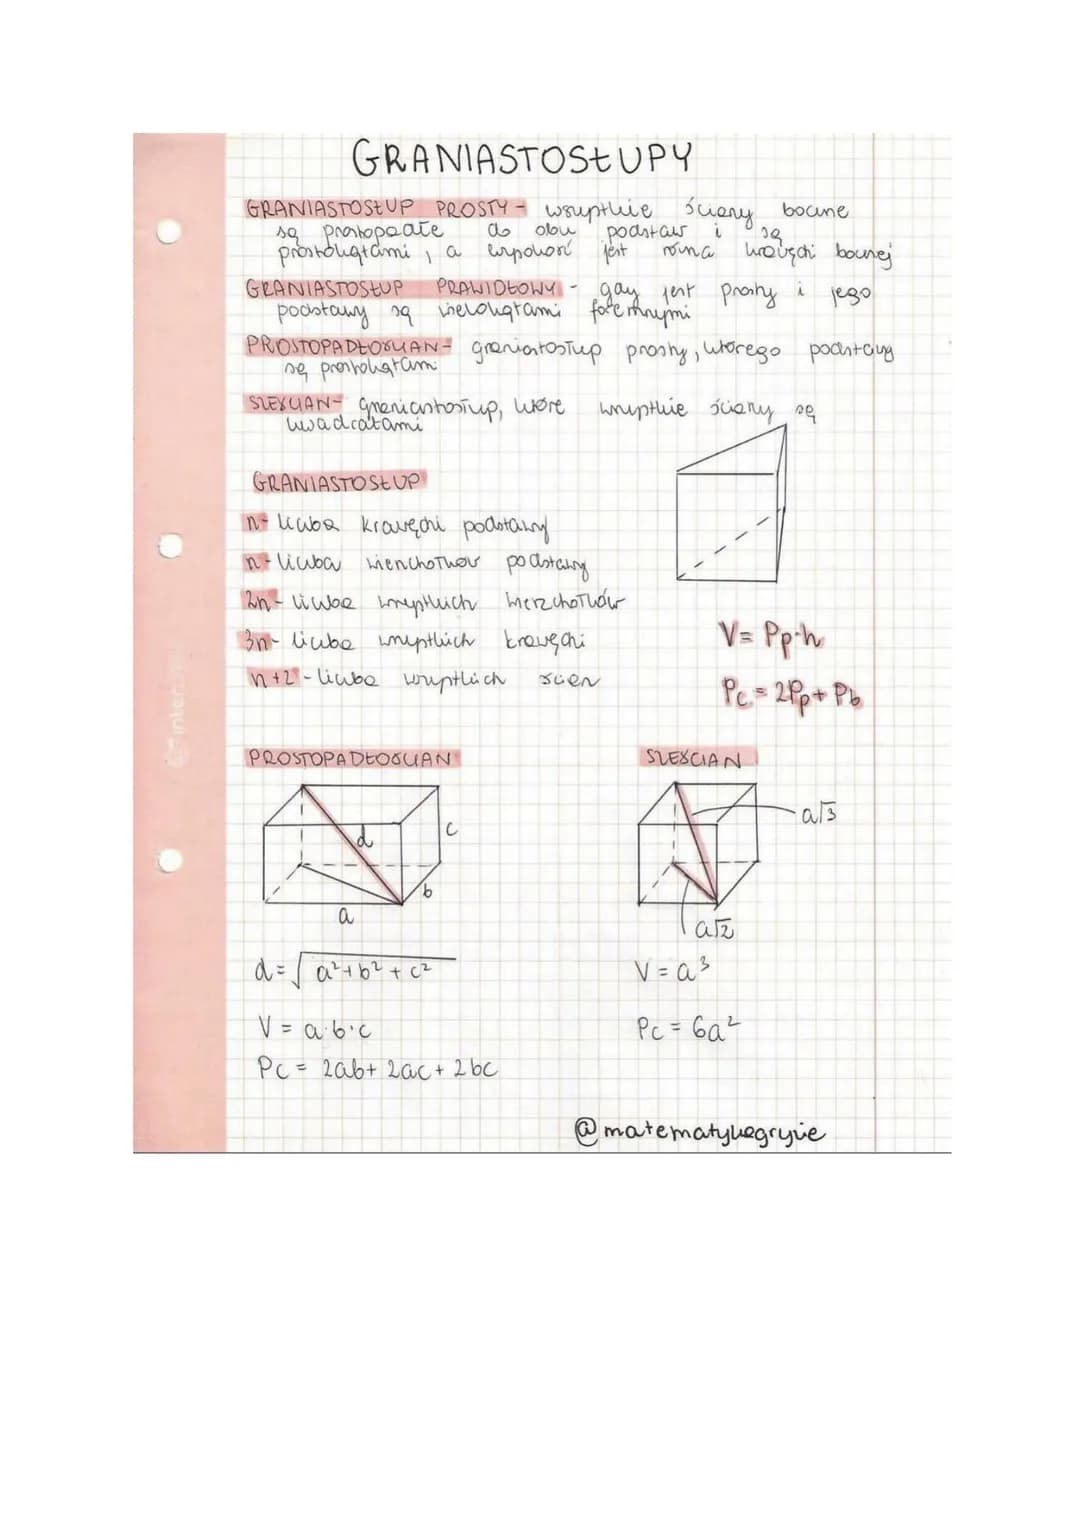 GRANIASTOSŁUPY
GRANIASTOSŁUP PROSTY - wszystkie ściany boczne
są prostopadłe do obu podstaw i są
prostokątami, a wysokość jest równa krawędzi bocznej
GRANIASTOSŁUP PRAWIDŁOWY - gdy jest prosty i jego
podstawy są wielokątami foremnymi
PROSTOPADŁOŚCIAN - graniastosłup prosty, którego podstawy
są prostokątami
SZEŚCIAN - graniastosłup, które wszystkie ściany są
kwadratami
GRANIASTOSŁUP
n - liczba krawędzi podstawy
n - liczba wierzchołków podstawy
2n - liczba wszystkich wierzchołków
3n - liczba wszystkich krawędzi
n+2 - liczba wszystkich ścian
V= Pp·h
Pc = 2Pp + Pb
PROSTOPADŁOŚCIAN
d
c
b
a
d = √a²+b²+c²
V = a·b·c
Pc = 2ab + 2ac + 2bc
SZEŚCIAN
a√3
a√2
V = a³
Pc = 6a²
@matematykagryzie